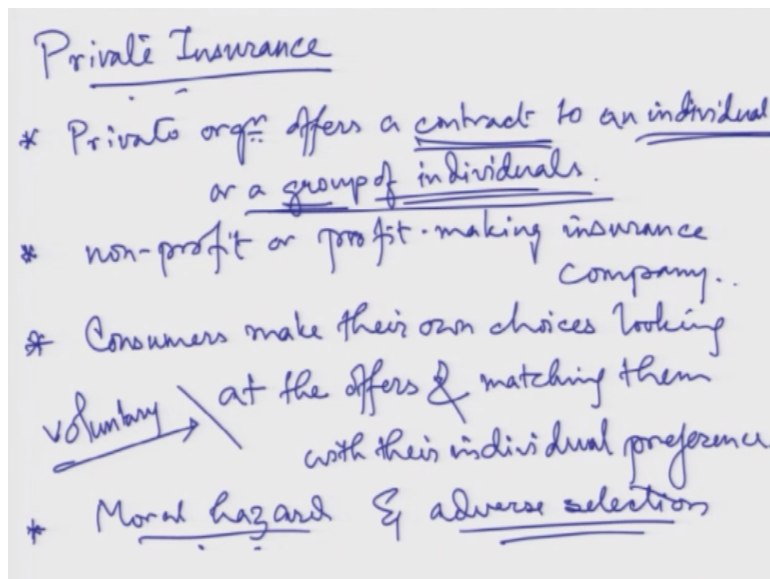 Private Insurance
* Private orgn offers a contract to an individual
or a group of individuals.
* non-profit or profit-making insurance
company..
* Consumers make their own choices looking
at the offers & matching them
voluntary
with their individual preference
* Moral hazard & adverse selection